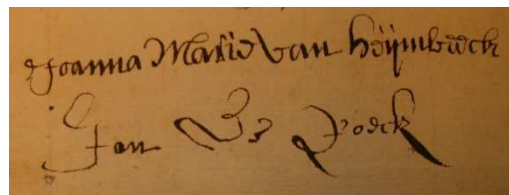 Joanna Marie van Heÿmbeeck
Jan De Poeck